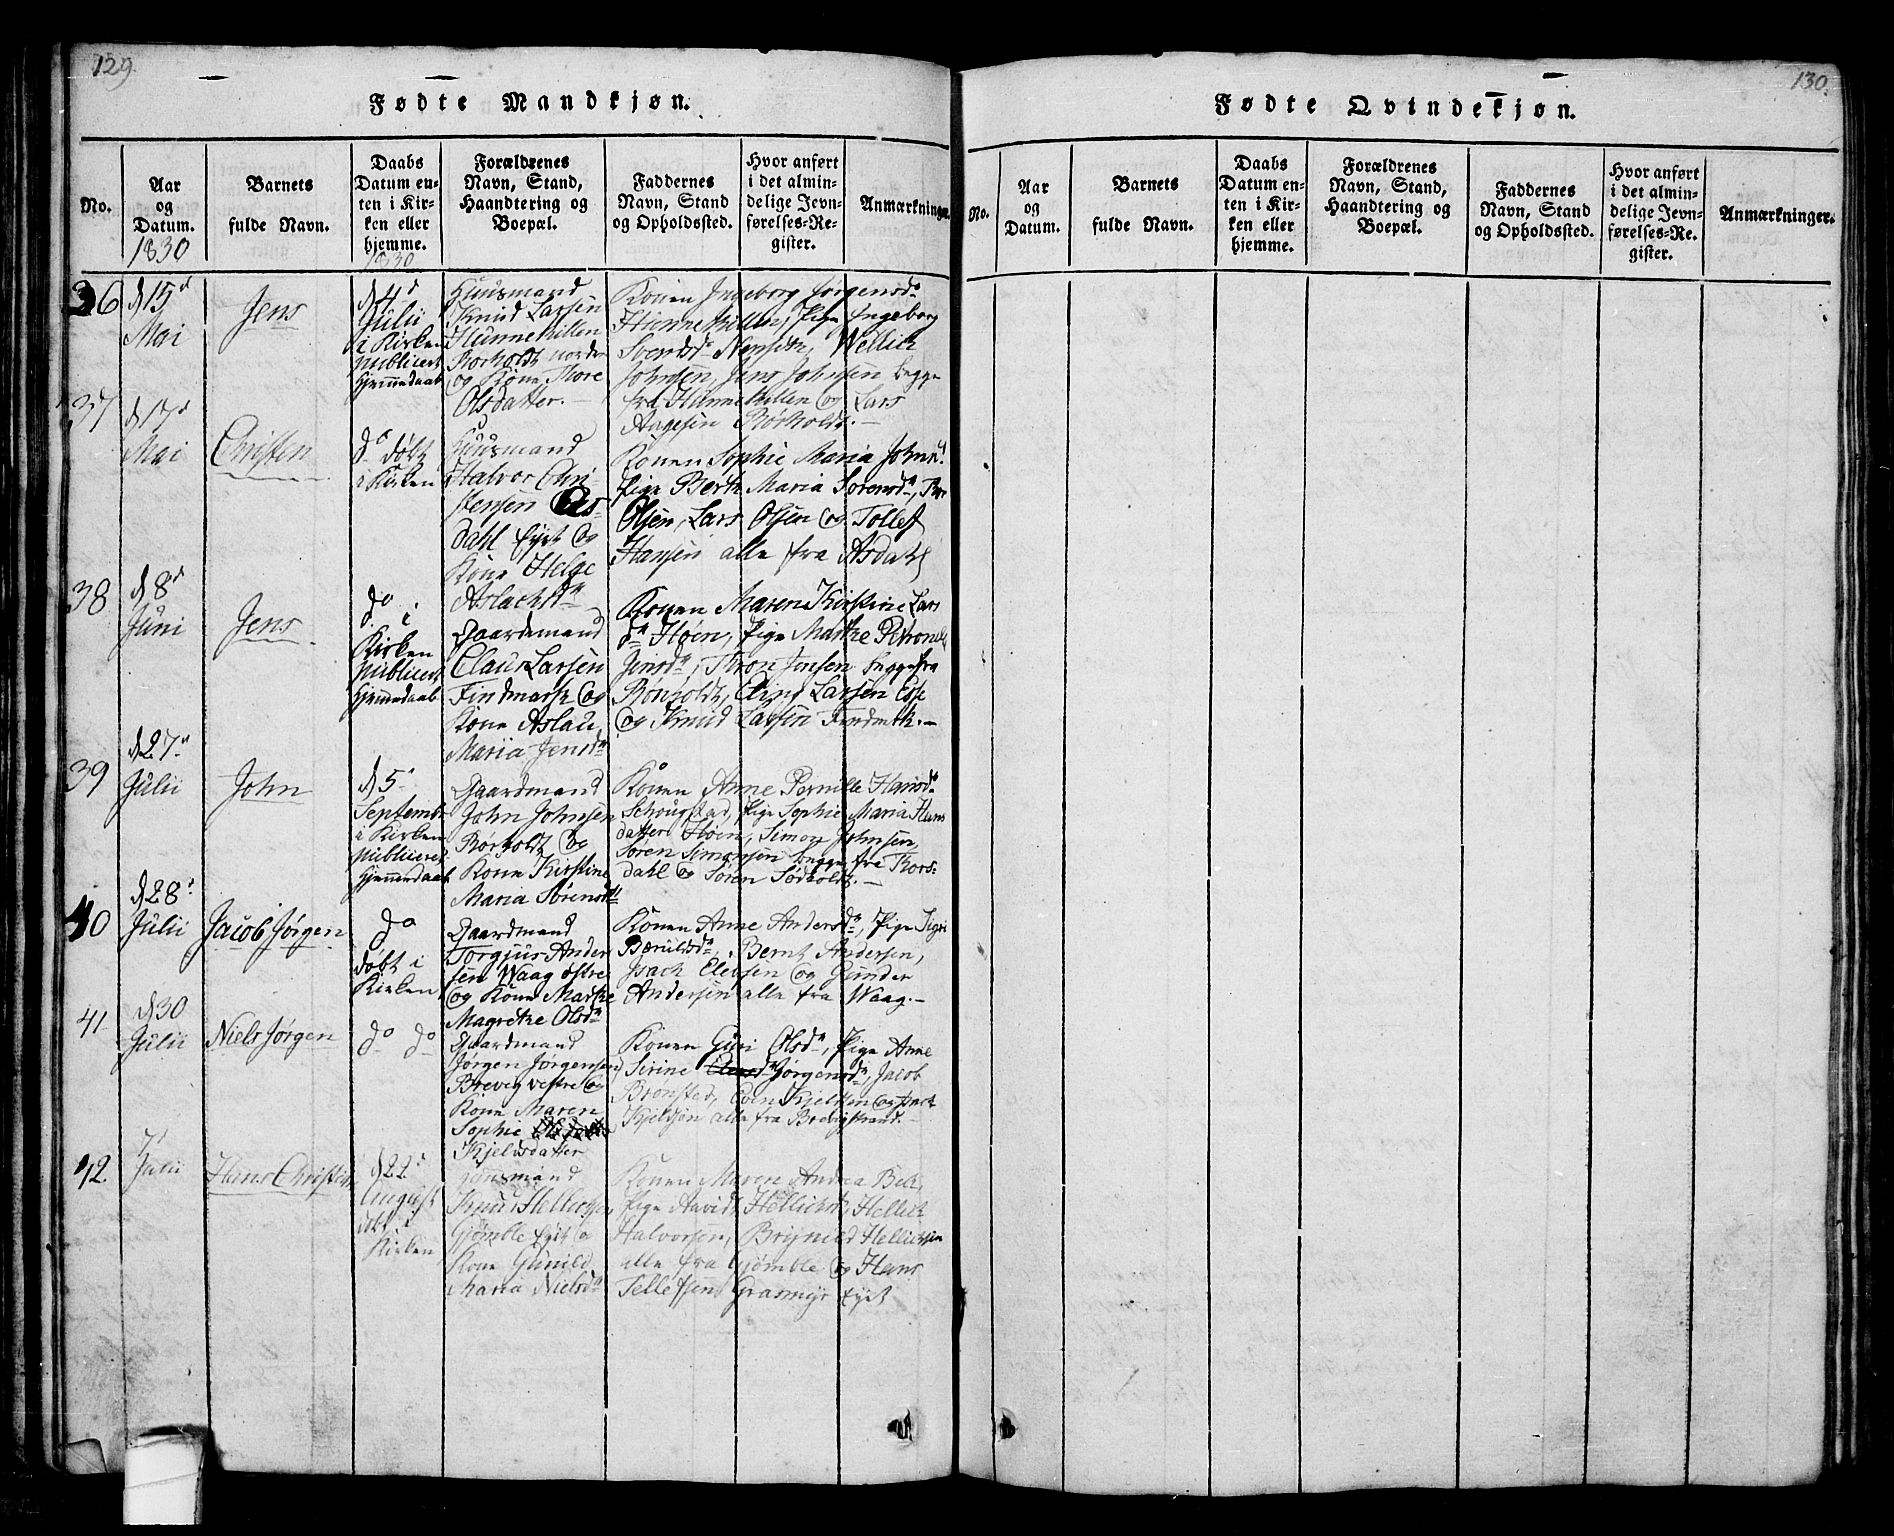 129.
Fødte Mandkjøn.
No.
Aar
og
Datum.
1830
Barnets
fulde Navn.
Daabs
Datum en-
ten i Kir-
ken eller
hjemme.
1830
Forældrenes
Navn, Stand,
Haandtering og
Boepæl.
Faddernes
Navn, Stand
og Opholdssted.
Hvor anført
i det almin-
delige Jevn-
førelses-Re-
gister.
Anmærkninger.
36
d 15d
Mai
Jens
d 4d
Julii
i Kirken
publiceret
hjemmedaab
Huusmand
Knud Larsen
Hunnekillen
Borholdt nordre
og Kone Thore
Olsdatter.
Konen Ingeborg Jørgensdr
Hunnekillen, Pige Ingeborg
Svendsdr Wellich
Johnsen, Jens Johnsen begge
fra Hunnekillen og Lars
Aagesen Børholdt.
37
d 17d
Mai
Christen
do døbt
i Kirken
Huusmand
Halvor Chri-
stensen As-
dahl Eyet og
Kone Helge
Aslachsdr
Konen Sophie Maria Johnsd
Pige Berthe Maria Sørensdr,
Olsen, Lars Olsen og Tollef
Hansen alle fra Asdahl
38
d 8d
Juni
Jens
do i
Kirken
publiceret
hjemmedaab
Gaardmand
Claus Larsen
Findmark og
Kone Aslau
Maria Jensdr
Konen Maren Kirstine Lars
dr Høen, Pige Marthe Petronelle
Jensdr, Thron Jensen begge fra
Børholdt, Eling Larsen
og Knud Larsen Findmk.
39
d 27d
Julii
John
d 5d
Septembr
i Kirken
publiceret
hjemmedaab
Gaardmand
John Johnsen
Børholdt og
Kone Kirstine
Maria Sørensdr
Konen Anne Pernille Hansdr
Schougstad, Pige Sophie Maria Hans
datter Høen, Simon Johnsen,
Søren Simonsen begge fra Thors-
dahl og Søren Sødholdt.
40
d 28d
Julii
Jacob Jørgen
do
døbt i
Kirken
Gaardmand
Torgjus Ander
sen Waag østre
og Kone Marthe
Magrethe Olsdr
Konen Anne Andersdr, Pige Sigri
Bærulsdr, Bernt Andersen,
Isach Elevsen og Gunder
Andersen alle fra Waag.
41
d 30
Julii
Niels Jørgen
do do
Gaardmand
Jørgen Jørgensen
Brevig vestre og
Kone Maren
Sophie
Kjeldsdatter
Konen Guri Olsdr, Pige Anne
Sirine Jørgensdr, Jacob
Brønsted, Even Kjeldsen og Isach
Kjeldsen alle fra Brevigstrand.
42.
Julii
Hans Christian
d 22d
August
døbt i
Kirken
Huusmand
Knud Hellichsen
Gjømble Eyet og
Kone Gunild
Maria Nielsdr
Konen Maren Andrea Beck,
Pige Hellichsdr, Hellich
Halvorsen, Brynild Hellichsen
alle fra Gjømble og Hans
Tellefsen Grasmyr Eyet
130.
Fødte Qvindekjøn.
No.
Aar
og
Datum.
Barnets
fulde Navn.
Daabs
Datum en-
ten i Kir-
ken eller
hjemme.
Forældrenes
Navn, Stand,
Haandtering og
Boepæl.
Faddernes
Navn, Stand
og Opholdssted.
Hvor anført
i det almin-
delige Jevn-
førelses-Re-
gister.
Anmærkninger.